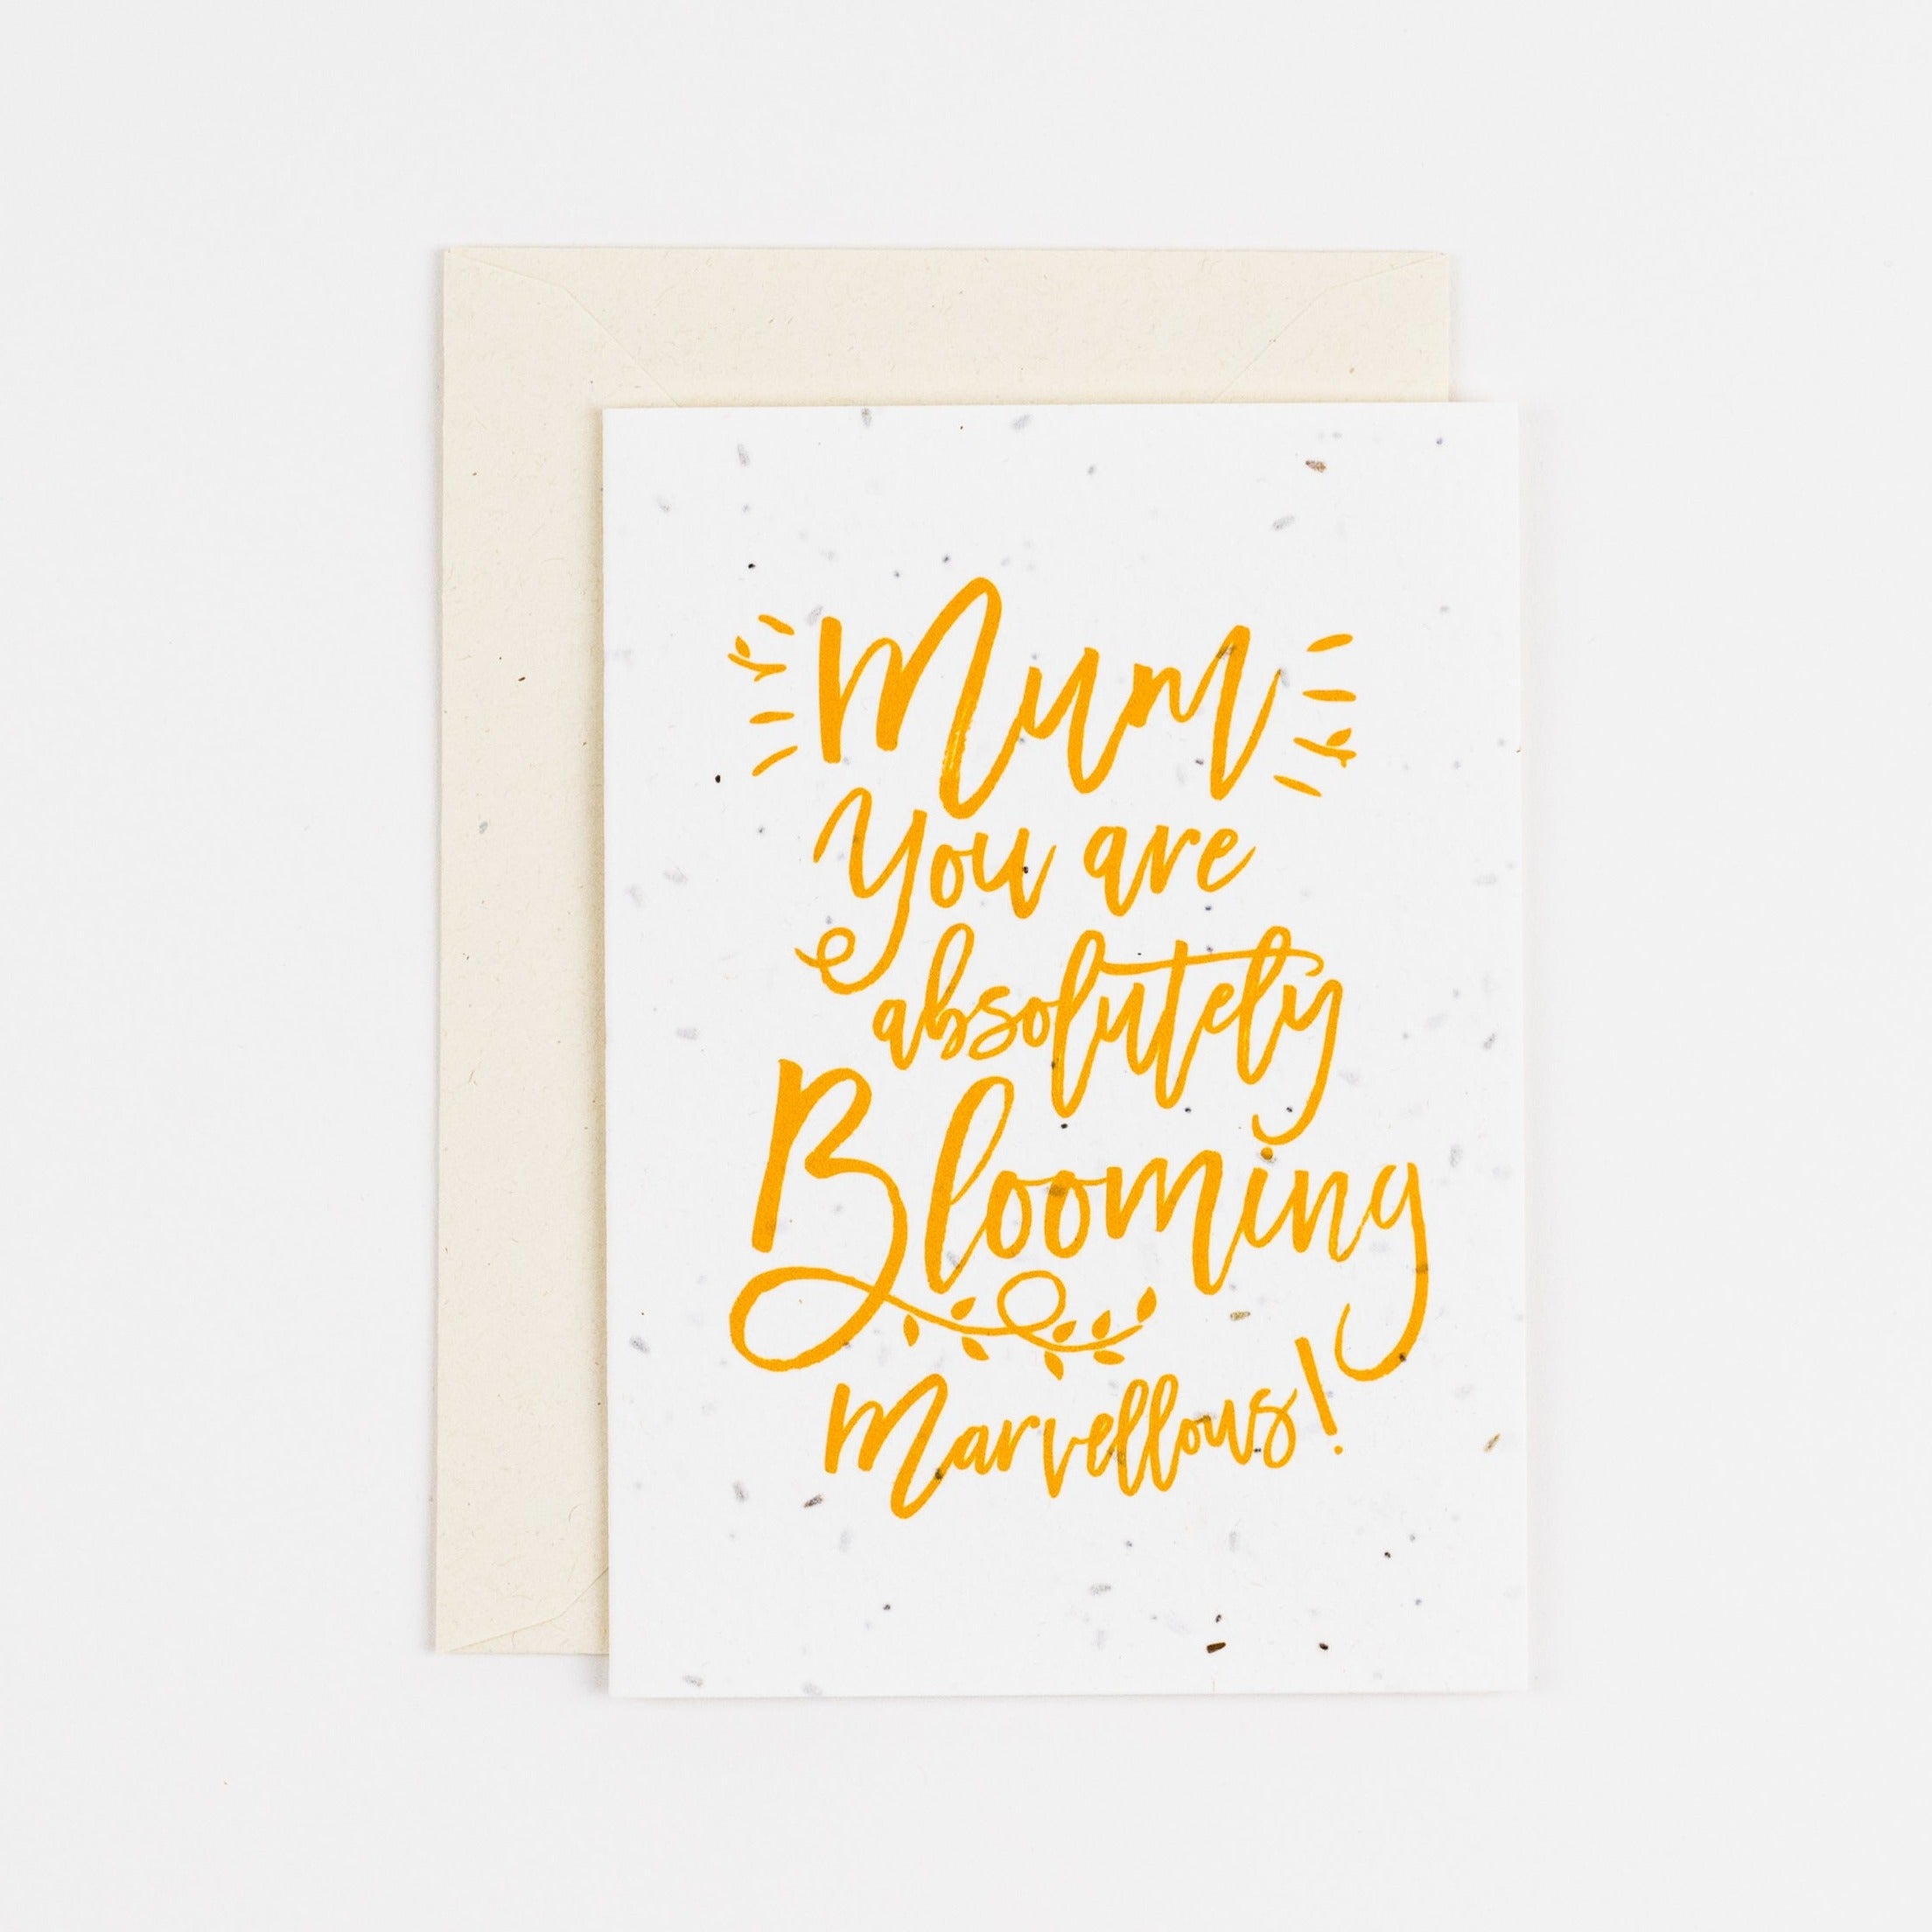 Mum
You are
absolutely
Blooming
Marvellous!